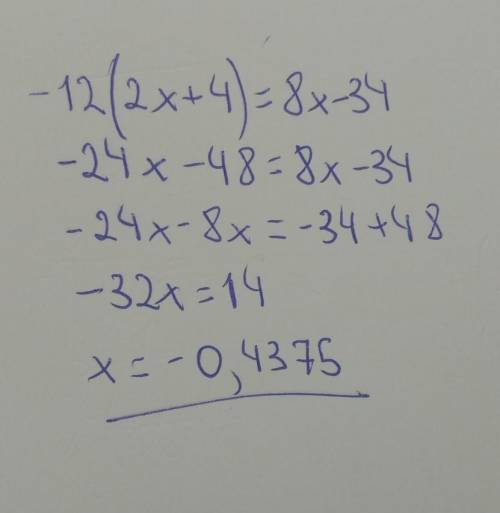 -12(2x+4)=8x-34
-24x-48=8x-34
-24x-8x=-34+48
-32x=14
x=-0,4375